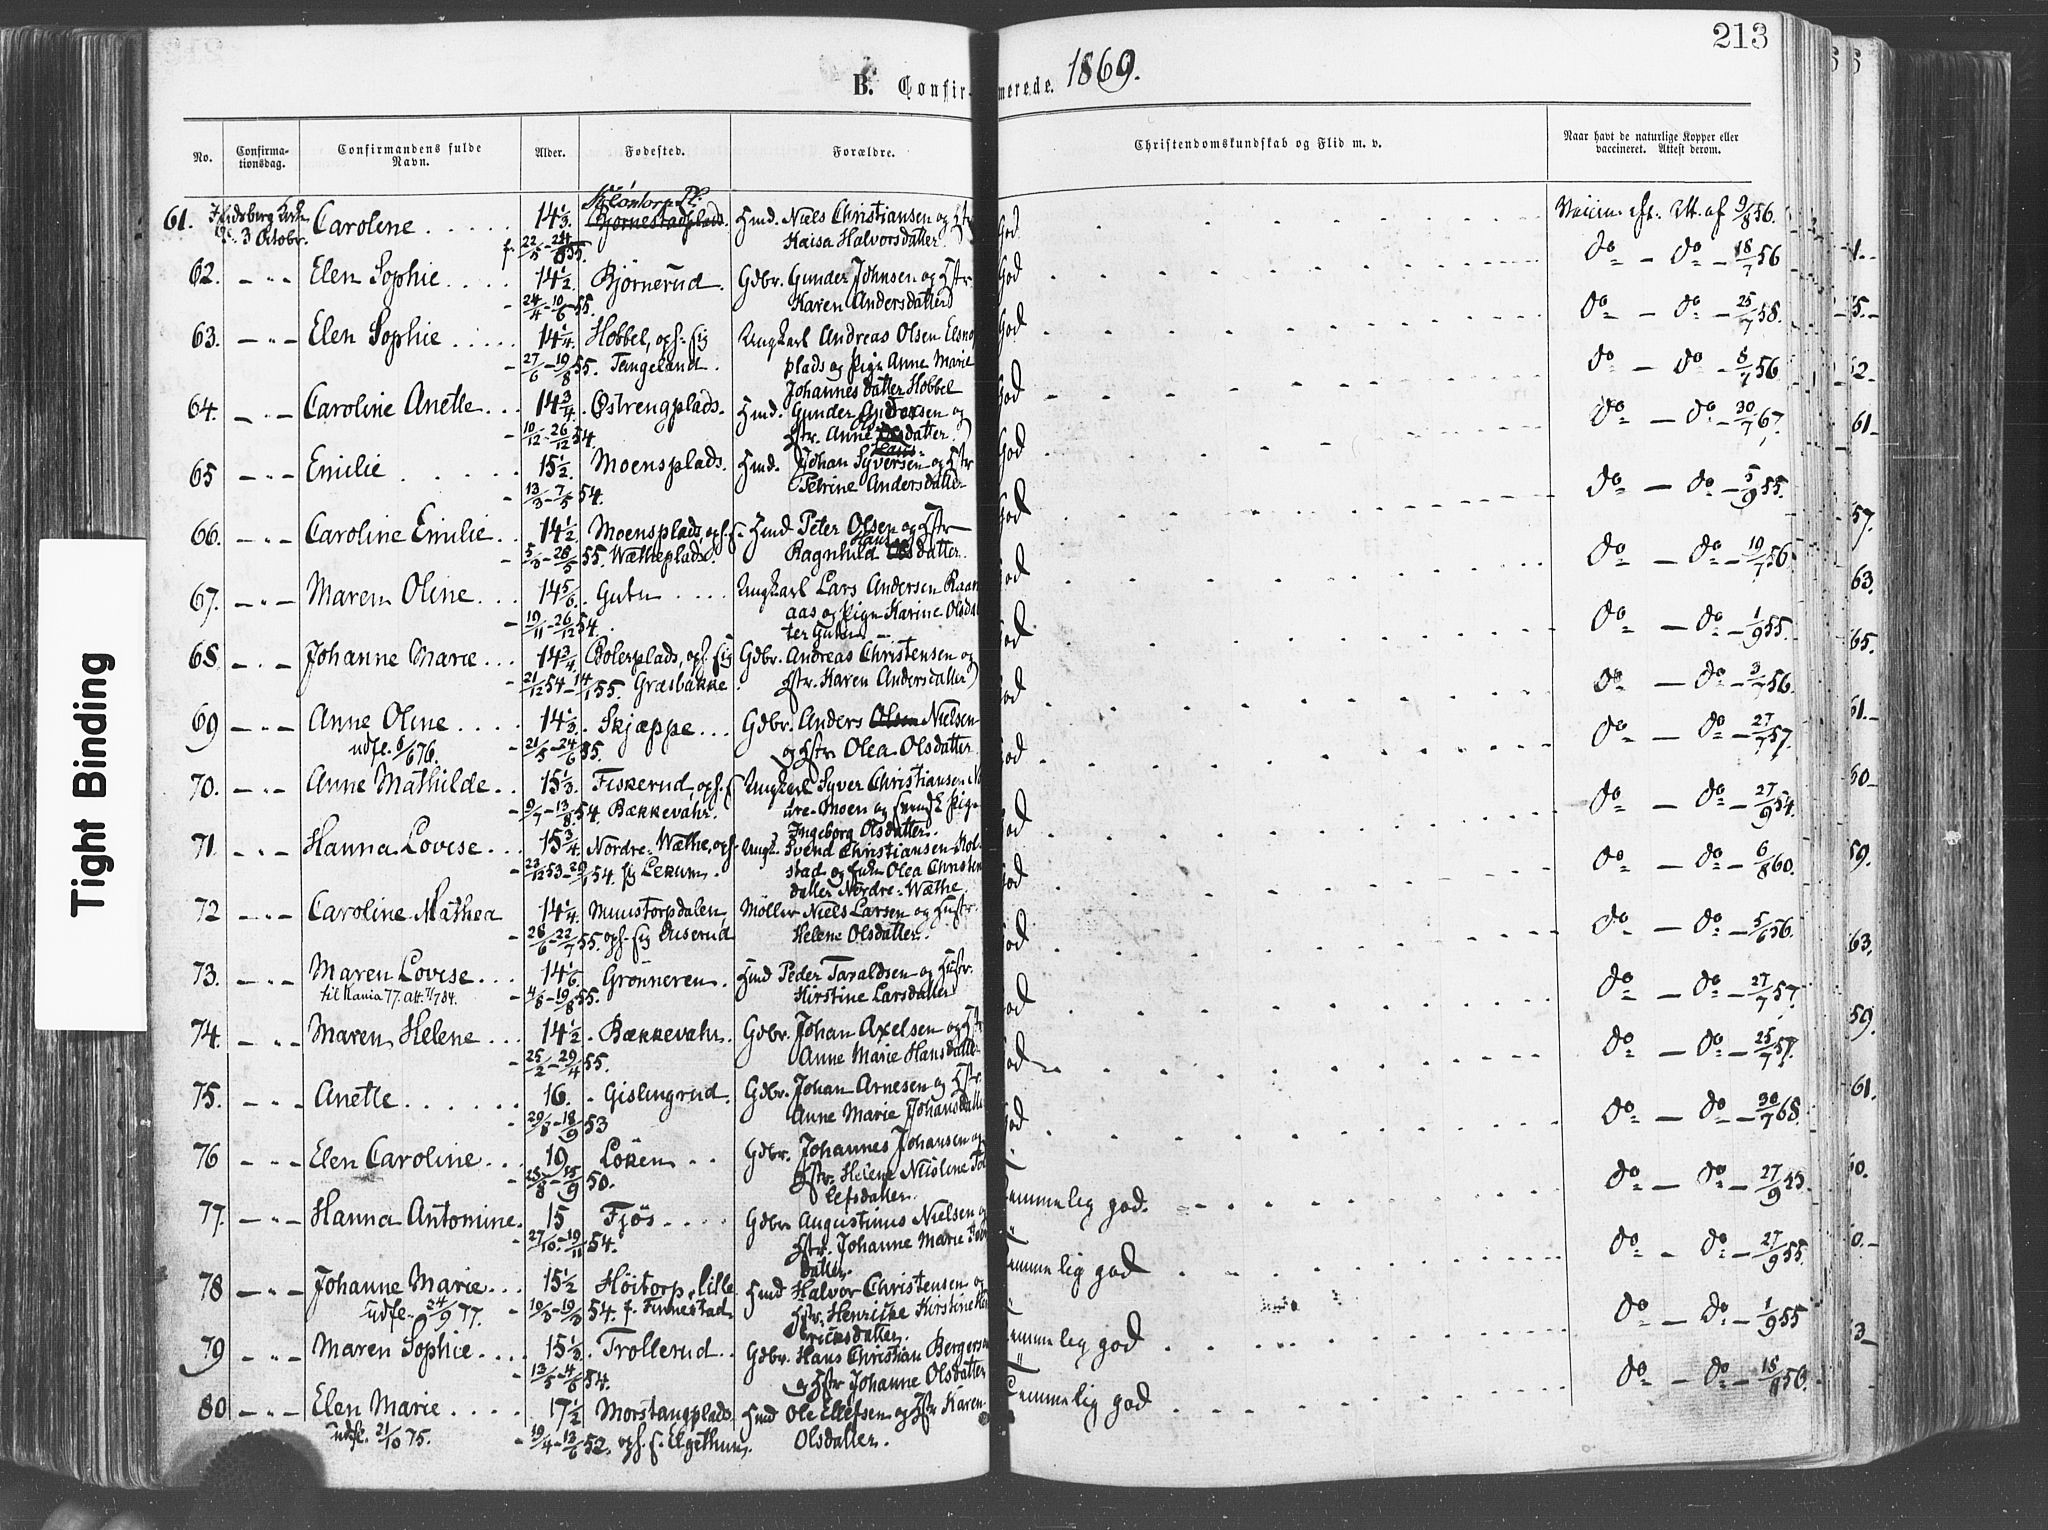 213
B. Confir- merede. 1869.
No. Confirma-tionsdag. Confirmandens fulde Navn. Alder. Fødested. Forældre. Christendomskundskab og Flid m. v. Naar havt de naturlige Kopper eller vaccineret. Attest derom.
Tight Binding
61. Kirke 3 Octobr. Carolene 14 1/3. f. 22/5 - 24/8 55. Pl. Bjørnestadplads Hmd. Niels Christiansen og Hstr
Kaisa Halvorsdatter God Att. af 9/8 56.
62. - " - Elen Sophie 14 1/2. 24/4 - 10/6 55. Bjørnerud. Gdbr. Gunder Johnsen og Hstr.
Karen Andersdatter God do - do - 18/7 56
63. - " - Elen Sophie 14 1/4 27/6 - 19/8 55. Hobbel, oph. sig Tangeland. Ungkarl Andreas Olsen
plads og Pige Anne Marie
Johannesdatter Hobbel God do - do - 25/7 58.
64. - " - Caroline Anette 14 3/4. 10/12 - 26/12 54. Østrengplads. Hmd. Gunder Andersen og
Hstr. Anne Olsdatter. God do - do - 8/7 56
65 - " - Emilie 15 1/2. 13/3 - 7/5 54. Moensplads. Hmd. Johan Syversen og Hstr
Petrine Andersdatter God do - do - 30/7 67.
66. - " - Caroline Emilie 14 1/2. 5/3 - 28/5 55. Moensplads, oph. s. Wætheplads. Hmd Peter Olsen og Hstr
Ragnhild Hansdatter. God do - do - 5/9 55.
67. - " - Maren Oline 14 5/6. 19/11 - 26/12 54. Guten Ungkarl Lars Andersen Raan
aas og Pige Karine Olsdat
ter Guten God do - do - 19/7 56.
68. - " - Johanne Marie 14 3/4. 21/12 54 - 14/1 55. Bolerplads, oph. sig Græsbakke Gdbr. Andreas Christensen og
Hstr. Karen Andersdatter God do - do - 1/9 55.
69 - " - Anne Oline 14 1/3. 21/5 - 24/6 55 Skjæppe Gdbr. Anders Olsen Nielsen
udfl. 6/6 76. og Hstr Olea Olsdatter God do - do - 3/7 56.
70. - " - Anne Mathilde 15 1/3. 9/7 - 13/8 54. Fiskerud, oph. s Bækkevahr. Ungkarl Syver Christiansen
Moen og Pige
Ingeborg Olsdatter. God do - do - 27/7 57.
71. - " - Hanna Lovise 15 3/4. 23/12 53 - 29/1 54. Nordre Wæthe, oph. sig Lekum. Ungk. Svend Christiansen Kol-
stad og Enke Olea Christens
datter Nordre Wæthe. God do - do - 27/9 54.
72 - " - Caroline Mathea 14 1/4. 28/6 - 22/7 55. Munstorpdalen, oph. sig Buserud Møller Niels Larsen og Hustr.
Helene Olsdatter. God do - do - 6/8 60.
73. - " - Maren Lovise 14 1/6. 4/8 - 19/8 55. Grønneren. Hmd Peder Taraldsen og Hustr.
til Kania 77. att. 7/7 84. Kirstine Larsdatter God do - do - 5/6 56.
74. - " - Maren Helene 14 1/2. 25/2 - 29/4 55. Bækkevahr. Gdbr. Johan Axelsen og Hstr
Anne Marie Hansdatter God do - do - 27/7 57.
75. - " - Anette 16. 29/8 - 18/9 53 Gislingrud. Gdbr. Johan Arnesen og Hstr.
Anne Marie Johansdatter God do - do - 25/7 57.
76 - " - Elen Caroline 19 25/8 - 15/9 50. Løken Gdbr. Johannes Johansen og
Hstr. Helene
lefsdatter. Temmelig god. do - do - 30/7 68.
77. - " - Hanna Antomine. 15 27/10 - 19/11 54. Fjøs Gdbr. Augustinus Nielsen og
Hstr. Johanne Marie
datter. Temmelig god do - do - 27/9 55.
78 - " - Johanne Marie 15 1/2 19/3 - 19/3 54. Høitorp, lille f. Finnestad. Hmd Halvor Christensen og
udfl. 24/9 77. Hstr. Henricke Kirstine Hen
ricksdatter. Temmelig god do - do - 27/9 55.
79 - " - Maren Sophie 15 1/3. 13/5 - 4/6 54. Trollerud Gdbr. Hans Christian Bergersen
og Hstr Johanne Olsdatter Temmelig god do - do - 1/9 55
80 - " - Elen Marie 17 1/2 19/4 - 13/6 52. Morstangplads oph. s. Elgethun. Hmd Ole Ellefsen og Hstr Karen
udfl. 21/10 75. Olsdatter. Temmelig god do - do - 18/8 56.